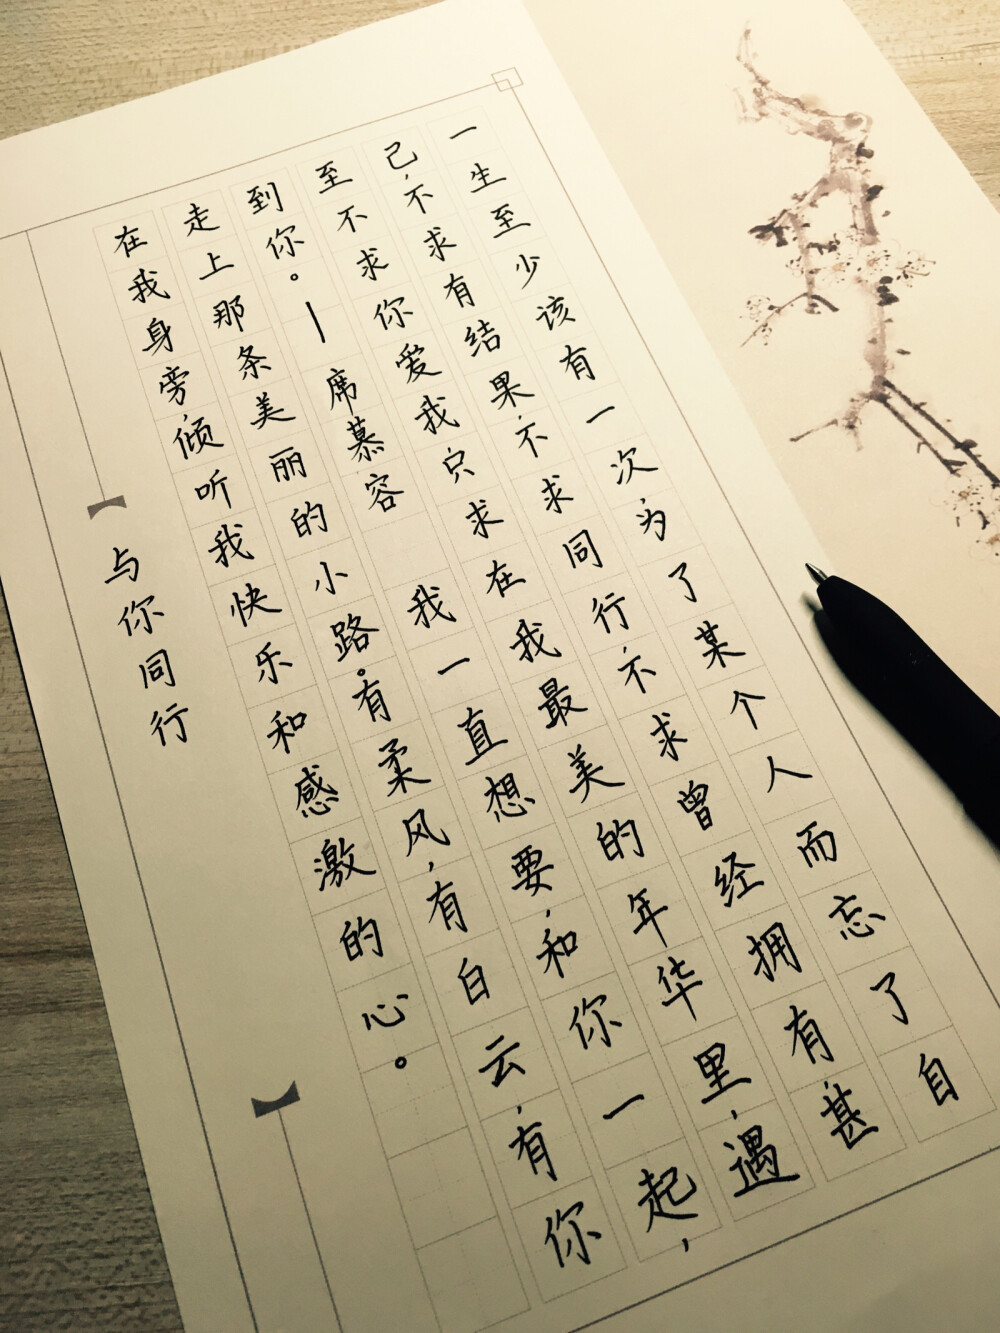 一生至少该有一次,为了某个人而忘了自
己,不求有结果,不求同行,不求曾经拥有,甚
至不求你爱我,只求在我最美的年华里,遇
到你。—席慕容 我一直想要,和你一起,
走上那条美丽的小路。有柔风,有白云,有你
在我身旁,倾听我快乐和感激的心。
与你同行